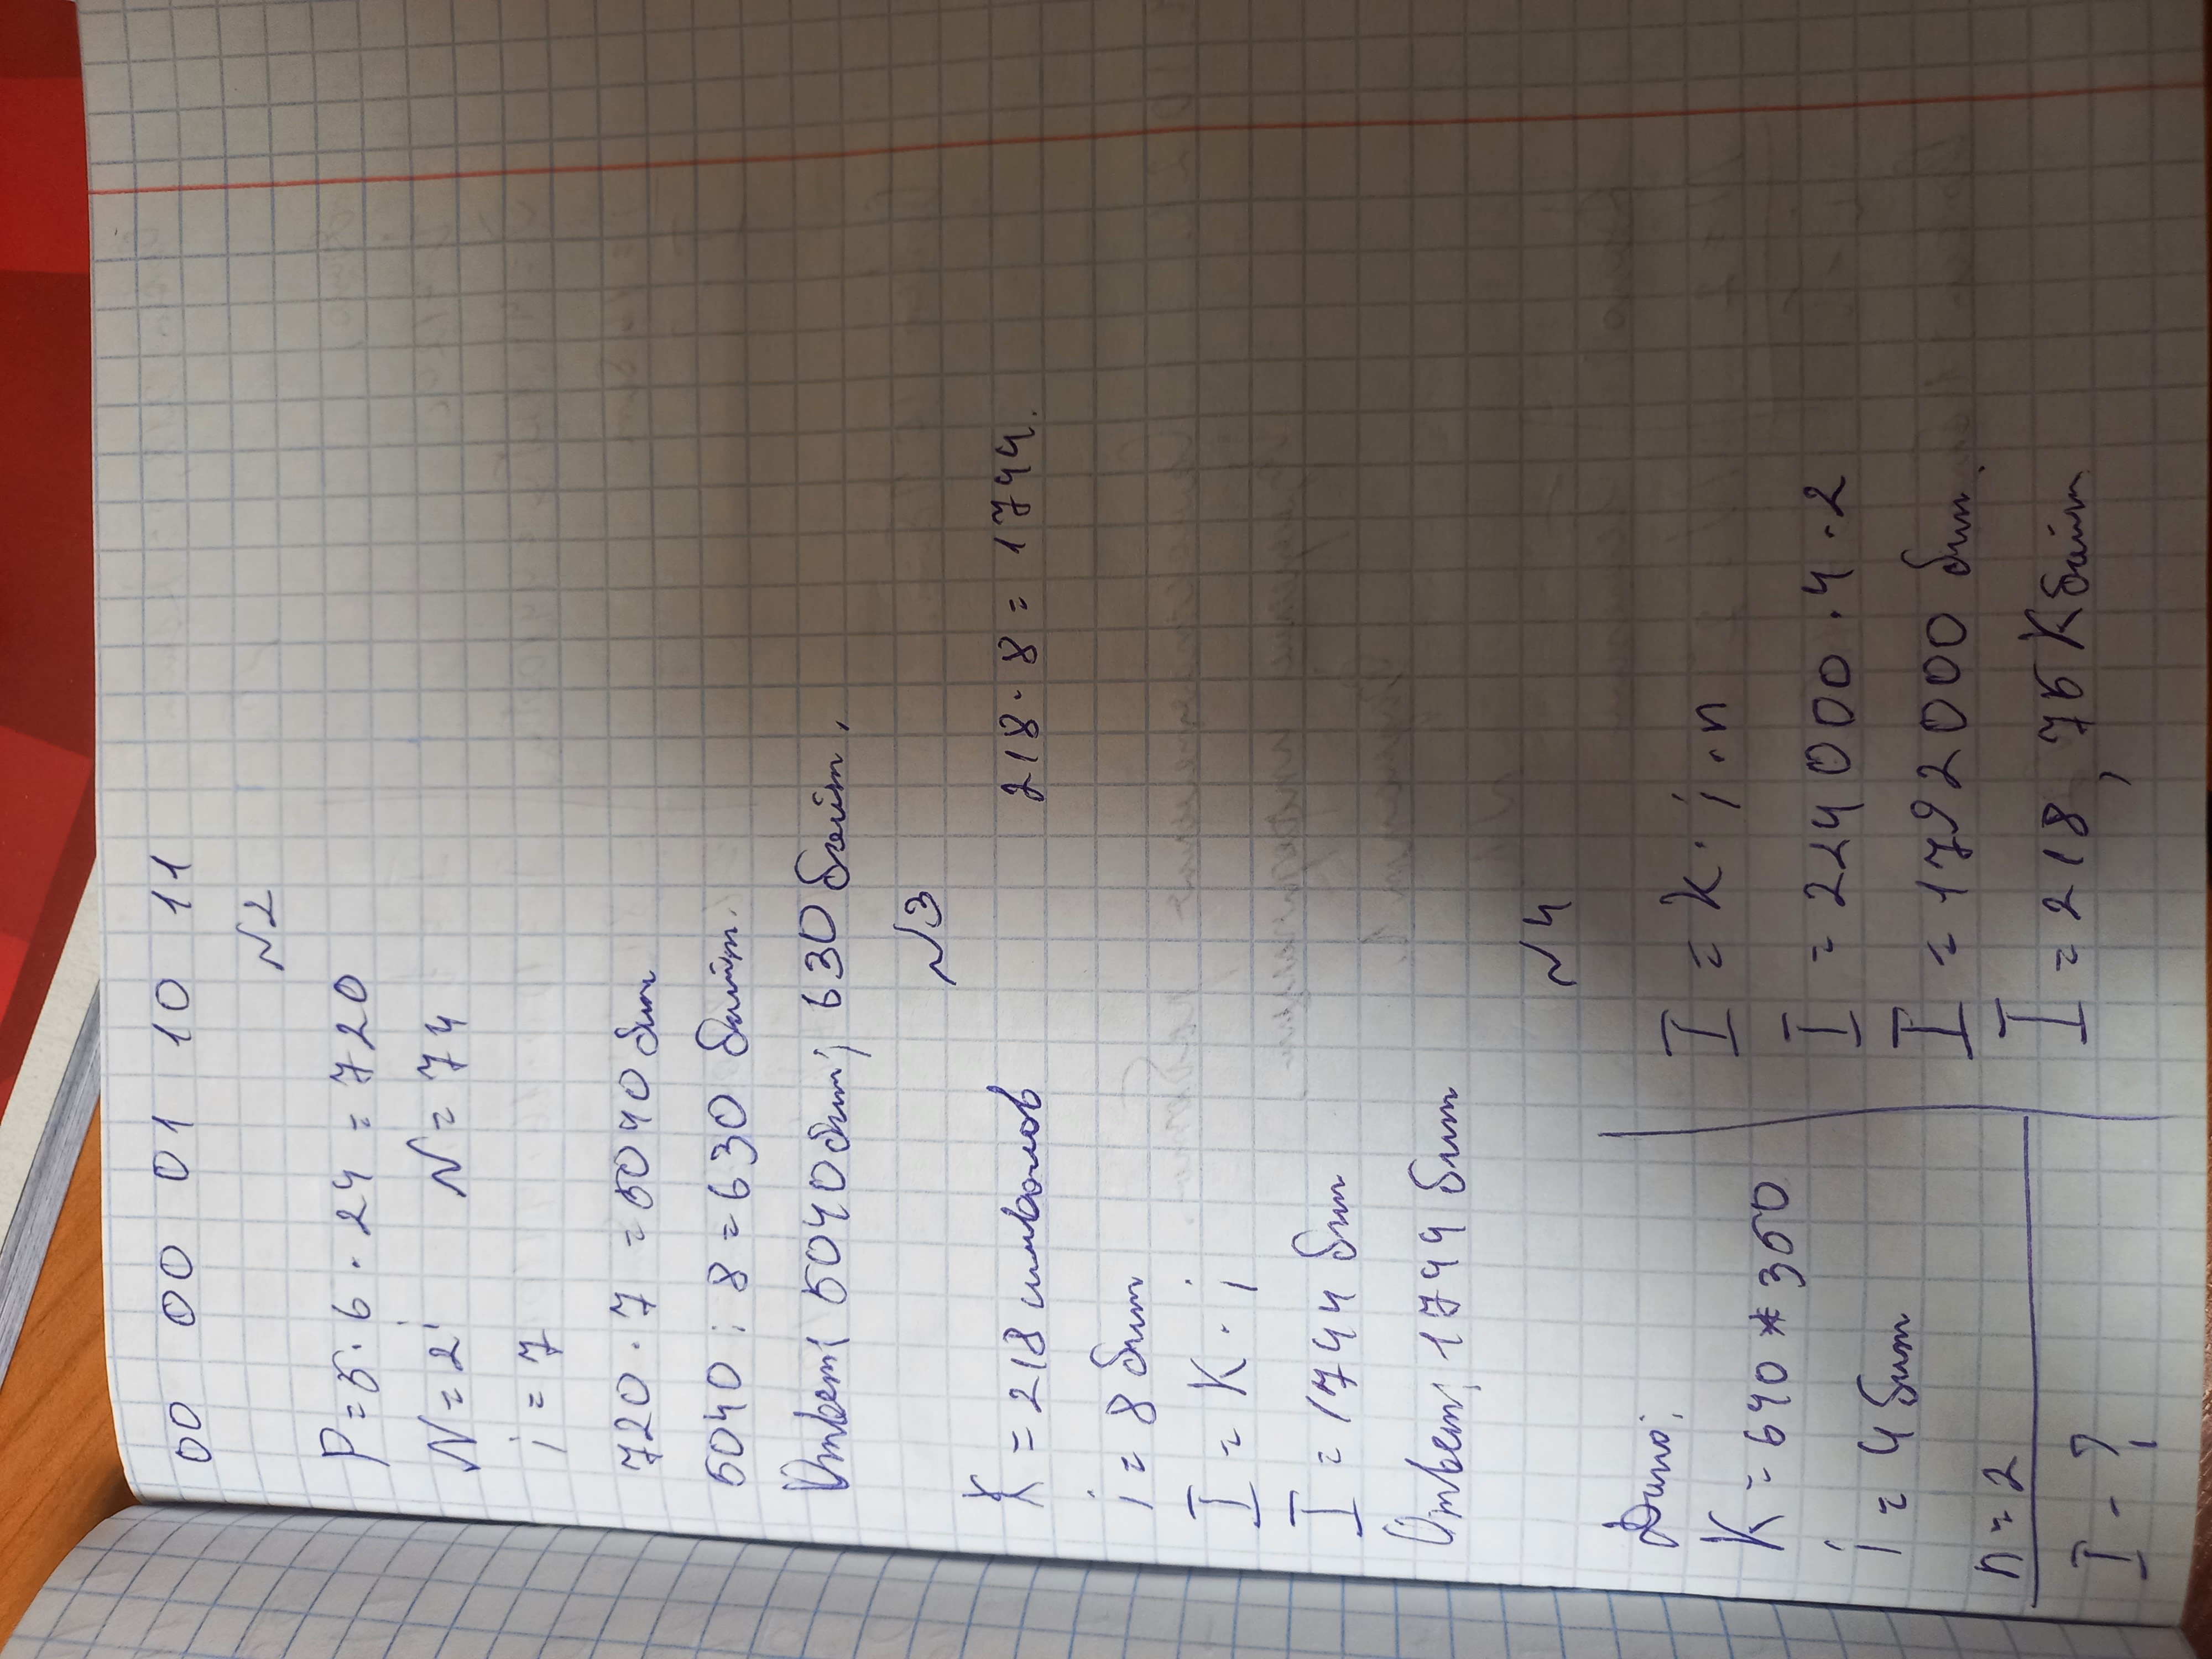 00 00 01 10 11
№2
P = 5 · 6 · 24 = 720
N = 2^i N = 74
i = 7
720 · 7 = 5040 бит
5040 : 8 = 630 байт.
Ответ: 5040 бит; 630 байт.
№3
K = 218 символов 218 · 8 = 1744.
i = 8 бит
I = K · i
I = 1744 бит
Ответ: 1744 бит
№4
Дано:
K = 640 * 350
i = 4 бит
n = 2
I - ?
I = K · i · n
I = 224000 · 4 · 2
I = 1792000 бит.
I = 218,75 Кбайт